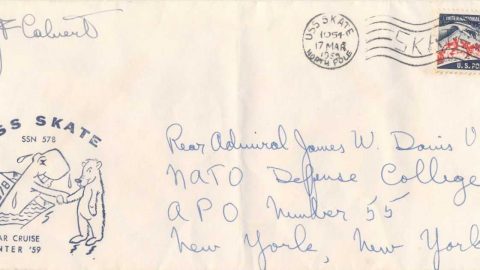 J F Calvert
USS SKATE
1054
17 MAR
1959
NORTH POLE
INTERNATIONAL
U.S. PO
USS SKATE
SSN 578
578
AR CRUISE
NTER '59
Rear Admiral James W. Davis U
NATO Defense College
APO Number 55
New York, New York